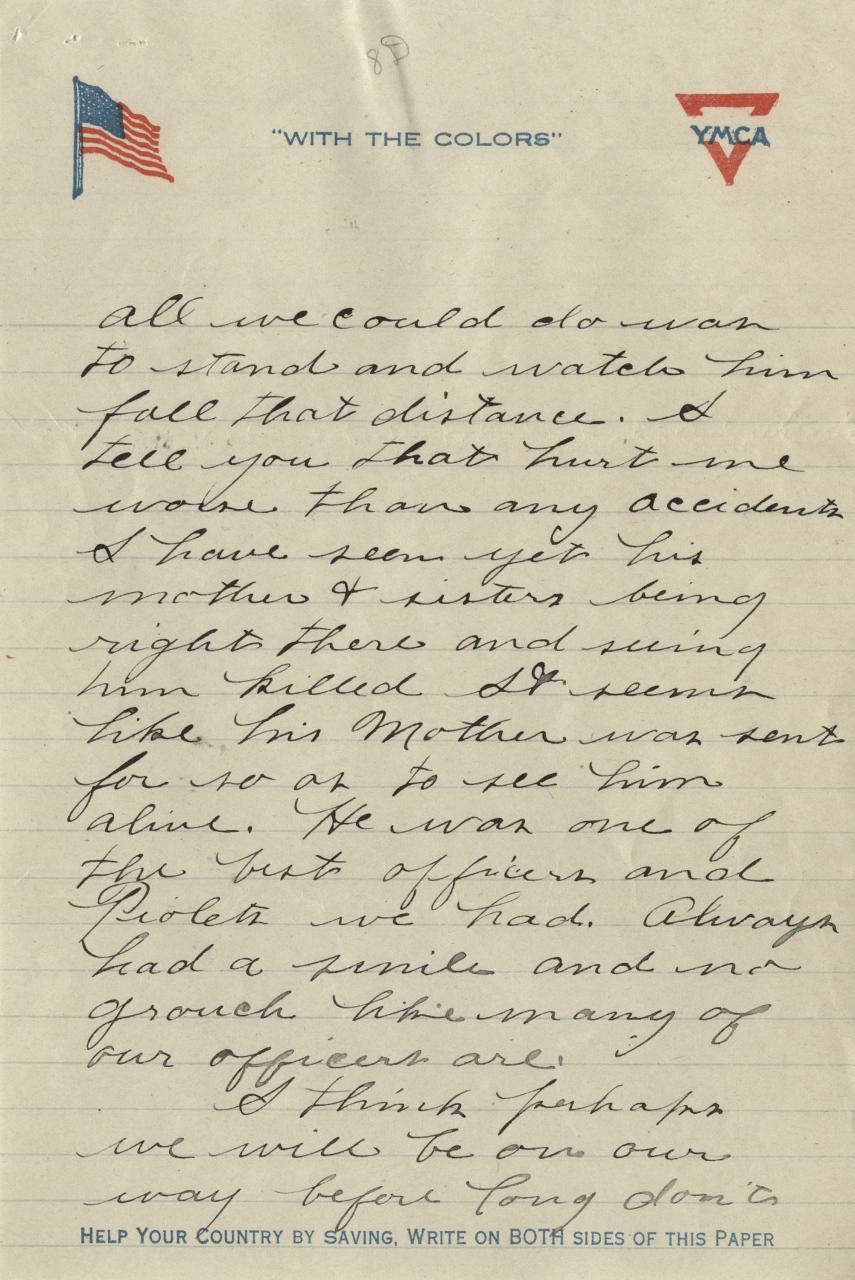 8D
"WITH THE COLORS"
YMCA
all we could do was
to stand and watch him
fall that distance. I
tell you that hurt me
worse than any accidents
I have seen yet his
mother & sisters being
right there and seeing
him killed It seems
like his Mother was sent
for so as to see him
alive. He was one of
the best officers and
Piolets we had. Always
had a smile and no
grouch like many of
our officers are.
I think perhaps
we will be on our
way before long don't
HELP YOUR COUNTRY BY SAVING, WRITE ON BOTH SIDES OF THIS PAPER